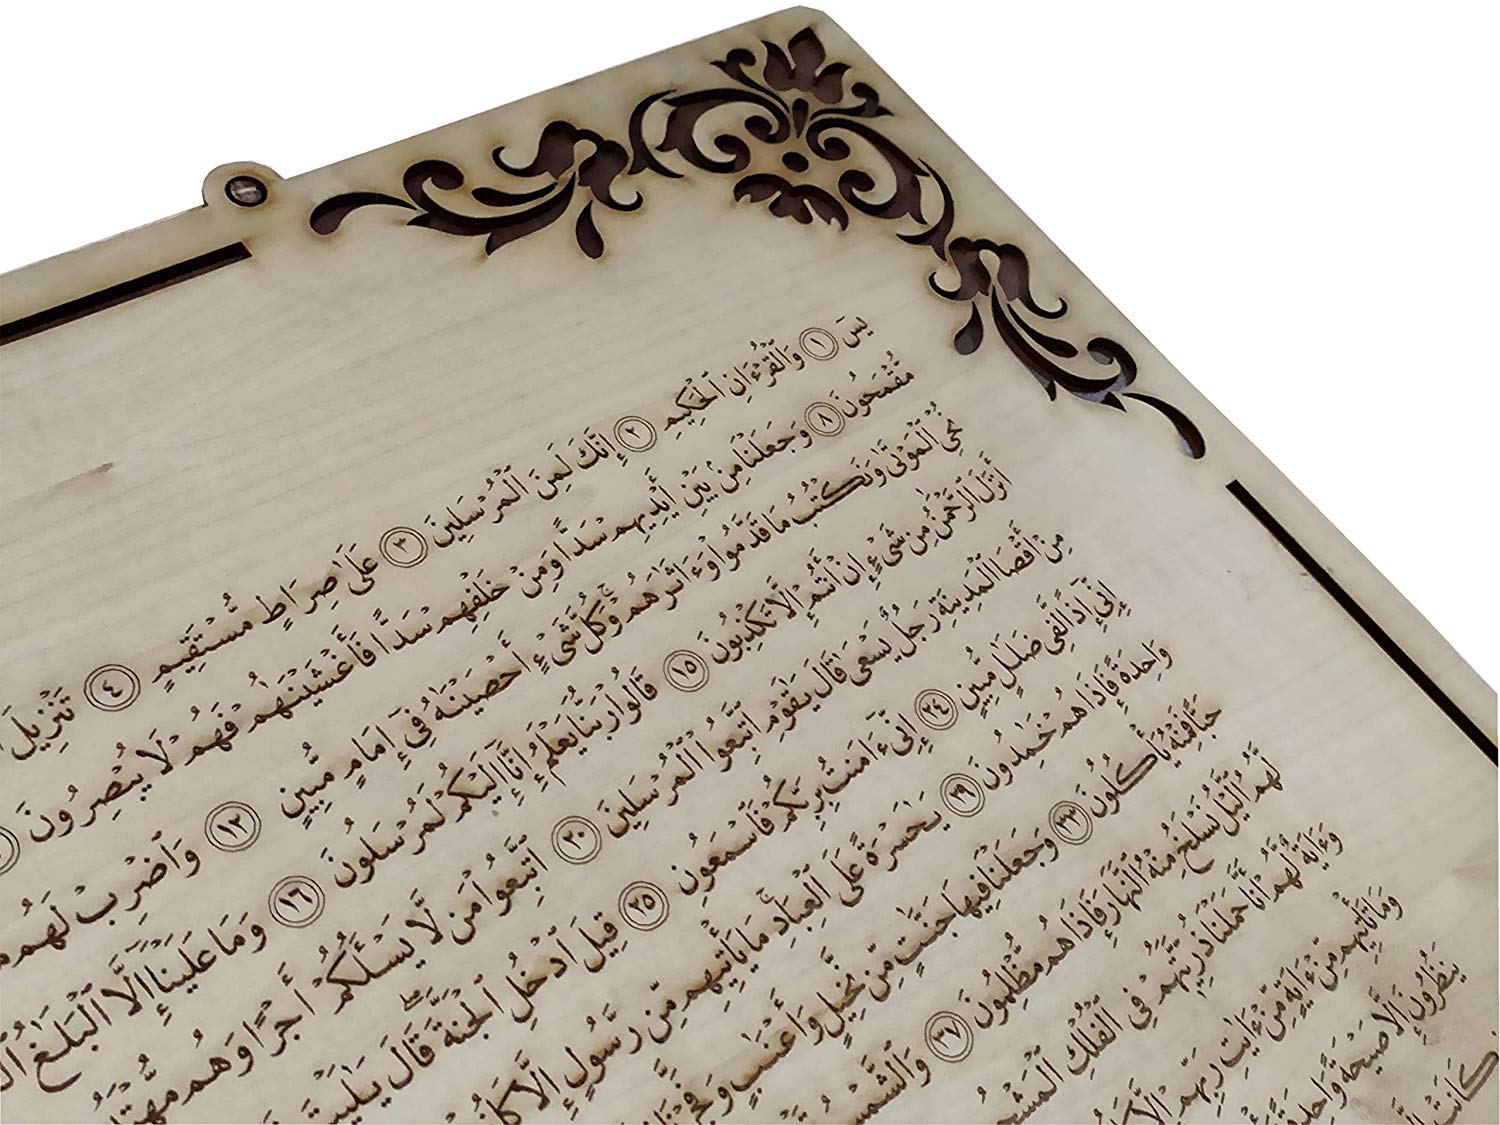 يسٓ ١ وَٱلْقُرْءَانِ ٱلْحَكِيمِ ٢ إِنَّكَ لَمِنَ ٱلْمُرْسَلِينَ ٣ عَلَىٰ صِرَٰطٍ مُّسْتَقِيمٍ ٤ تَنزِيلَ
مُّقْمَحُونَ ٨ وَجَعَلْنَا مِنۢ بَيْنِ أَيْدِيهِمْ سَدًّا وَمِنْ خَلْفِهِمْ سَدًّا فَأَغْشَيْنَٰهُمْ فَهُمْ لَا يُبْصِرُونَ
نُحْىِ ٱلْمَوْتَىٰ وَنَكْتُبُ مَا قَدَّمُوا۟ وَءَاثَٰرَهُمْ وَكُلَّ شَىْءٍ أَحْصَيْنَٰهُ فِىٓ إِمَامٍ مُّبِينٍ ١٢ وَٱضْرِبْ لَهُم
أَنزَلَ ٱلرَّحْمَٰنُ مِن شَىْءٍ إِنْ أَنتُمْ إِلَّا تَكْذِبُونَ ١٥ قَالُوا۟ رَبُّنَا يَعْلَمُ إِنَّآ إِلَيْكُمْ لَمُرْسَلُونَ ١٦ وَمَا عَلَيْنَآ إِلَّا ٱلْبَلَٰغُ
مِنْ أَقْصَا ٱلْمَدِينَةِ رَجُلٌ يَسْعَىٰ قَالَ يَٰقَوْمِ ٱتَّبِعُوا۟ ٱلْمُرْسَلِينَ ٢٠ ٱتَّبِعُوا۟ مَن لَّا يَسْـَٔلُكُمْ أَجْرًا وَهُم
إِنِّىٓ إِذًا لَّفِى ضَلَٰلٍ مُّبِينٍ ٢٤ إِنِّىٓ ءَامَنتُ بِرَبِّكُمْ فَٱسْمَعُونِ ٢٥ قِيلَ ٱدْخُلِ ٱلْجَنَّةَ قَالَ يَٰلَيْتَ
وَٰحِدَةً فَإِذَا هُمْ خَٰمِدُونَ ٢٩ يَٰحَسْرَةً عَلَى ٱلْعِبَادِ مَا يَأْتِيهِم مِّن رَّسُولٍ إِلَّا
حَبًّا فَمِنْهُ يَأْكُلُونَ ٣٣ وَجَعَلْنَا فِيهَا جَنَّٰتٍ مِّن نَّخِيلٍ وَأَعْنَٰبٍ
لَّهُمُ ٱلَّيْلُ نَسْلَخُ مِنْهُ ٱلنَّهَارَ فَإِذَا هُم مُّظْلِمُونَ ٣٧ وَٱلشَّمْسُ
وَءَايَةٌ لَّهُمْ أَنَّا حَمَلْنَا ذُرِّيَّتَهُمْ فِى ٱلْفُلْكِ
وَمَا تَأْتِيهِم مِّنْ ءَايَةٍ مِّنْ ءَايَٰتِ رَبِّهِمْ إِلَّا
يَنظُرُونَ إِلَّا صَيْحَةً وَٰحِدَةً
كَانَتْ